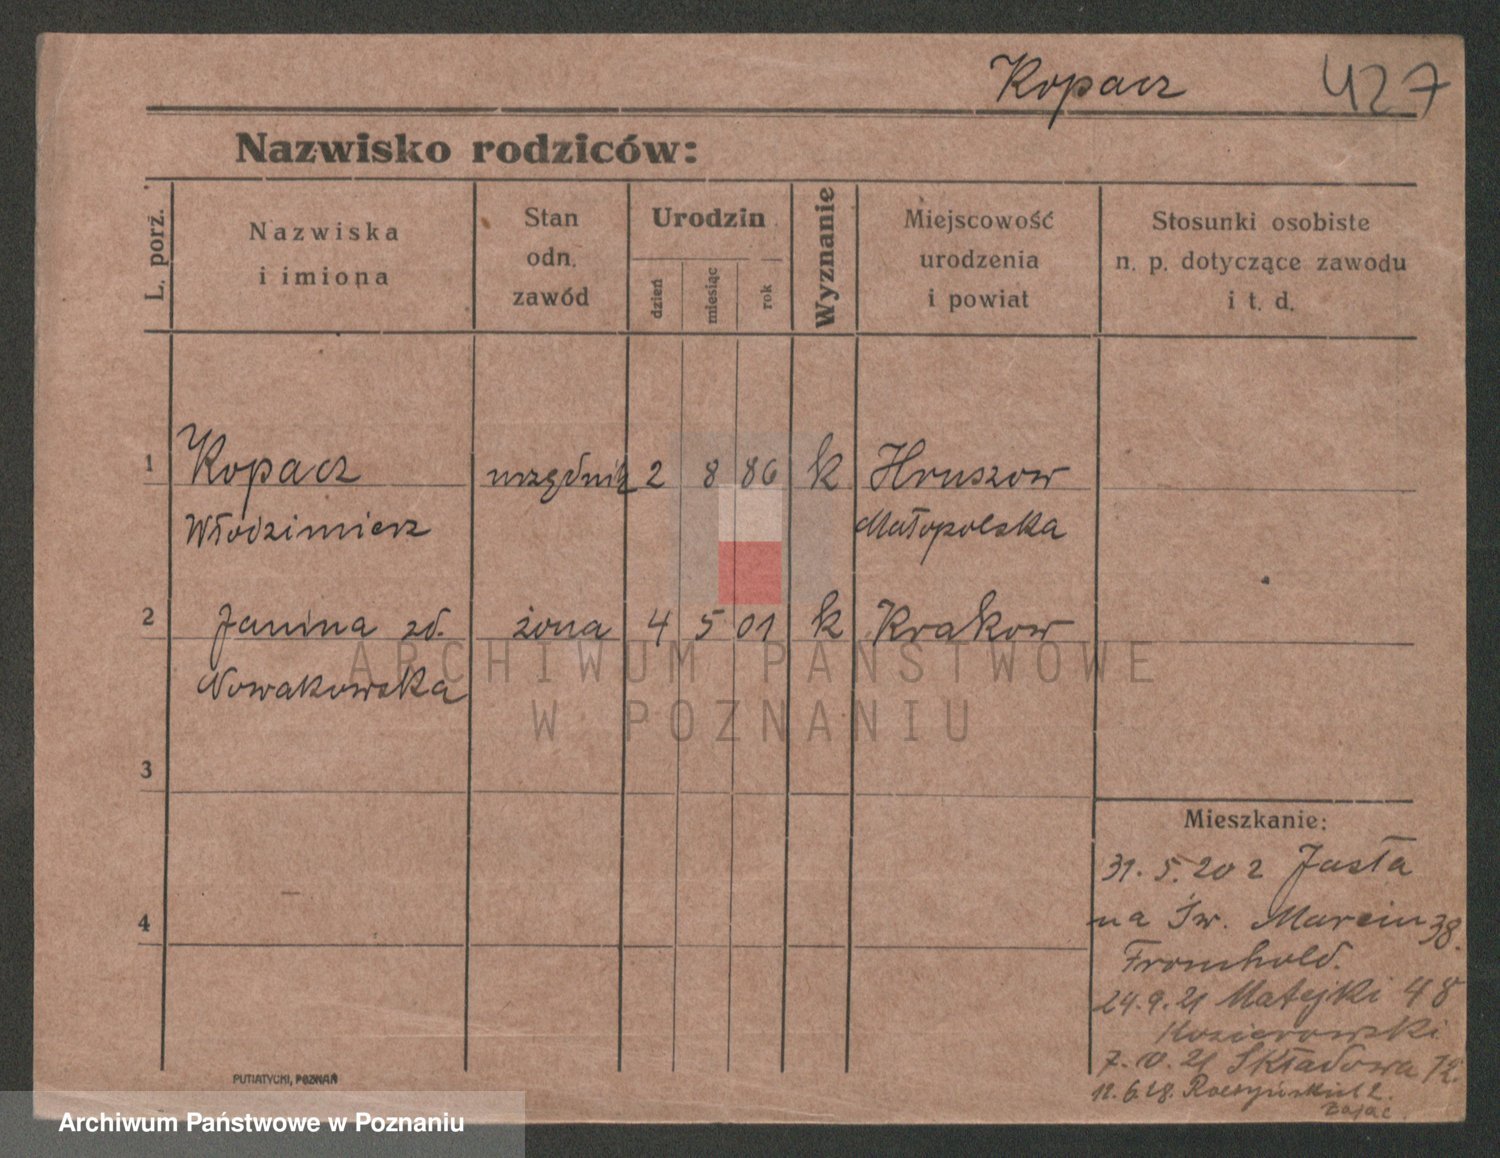 Kopacz 427
Nazwisko rodziców:
L. porz.
Nazwiska
i imiona
Stan
odn.
zawód
Urodzin
dzień
miesiąc
rok
Wyznanie
Miejscowość
urodzenia
i powiat
Stosunki osobiste
n. p. dotyczące zawodu
i t. d.
1 Kopacz urzędnik 2 8 86 k Hruszow
Włodzimierz Małopolska
2 Janina zd. żona 4 5 01 k Krakow
Nowakowska
ARCHIWUM PAŃSTWOWE
W POZNANIU
3
4
Mieszkanie:
31. 5. 20 z Jasła
na Św. Marcin 38.
Fromhold.
24.9.21 Matejki 48
Kozierowski
7. 21 Składowa 12.
12.6.28.
Zając.
PUTIATYCKI, POZNAŃ
Archiwum Państwowe w Poznaniu